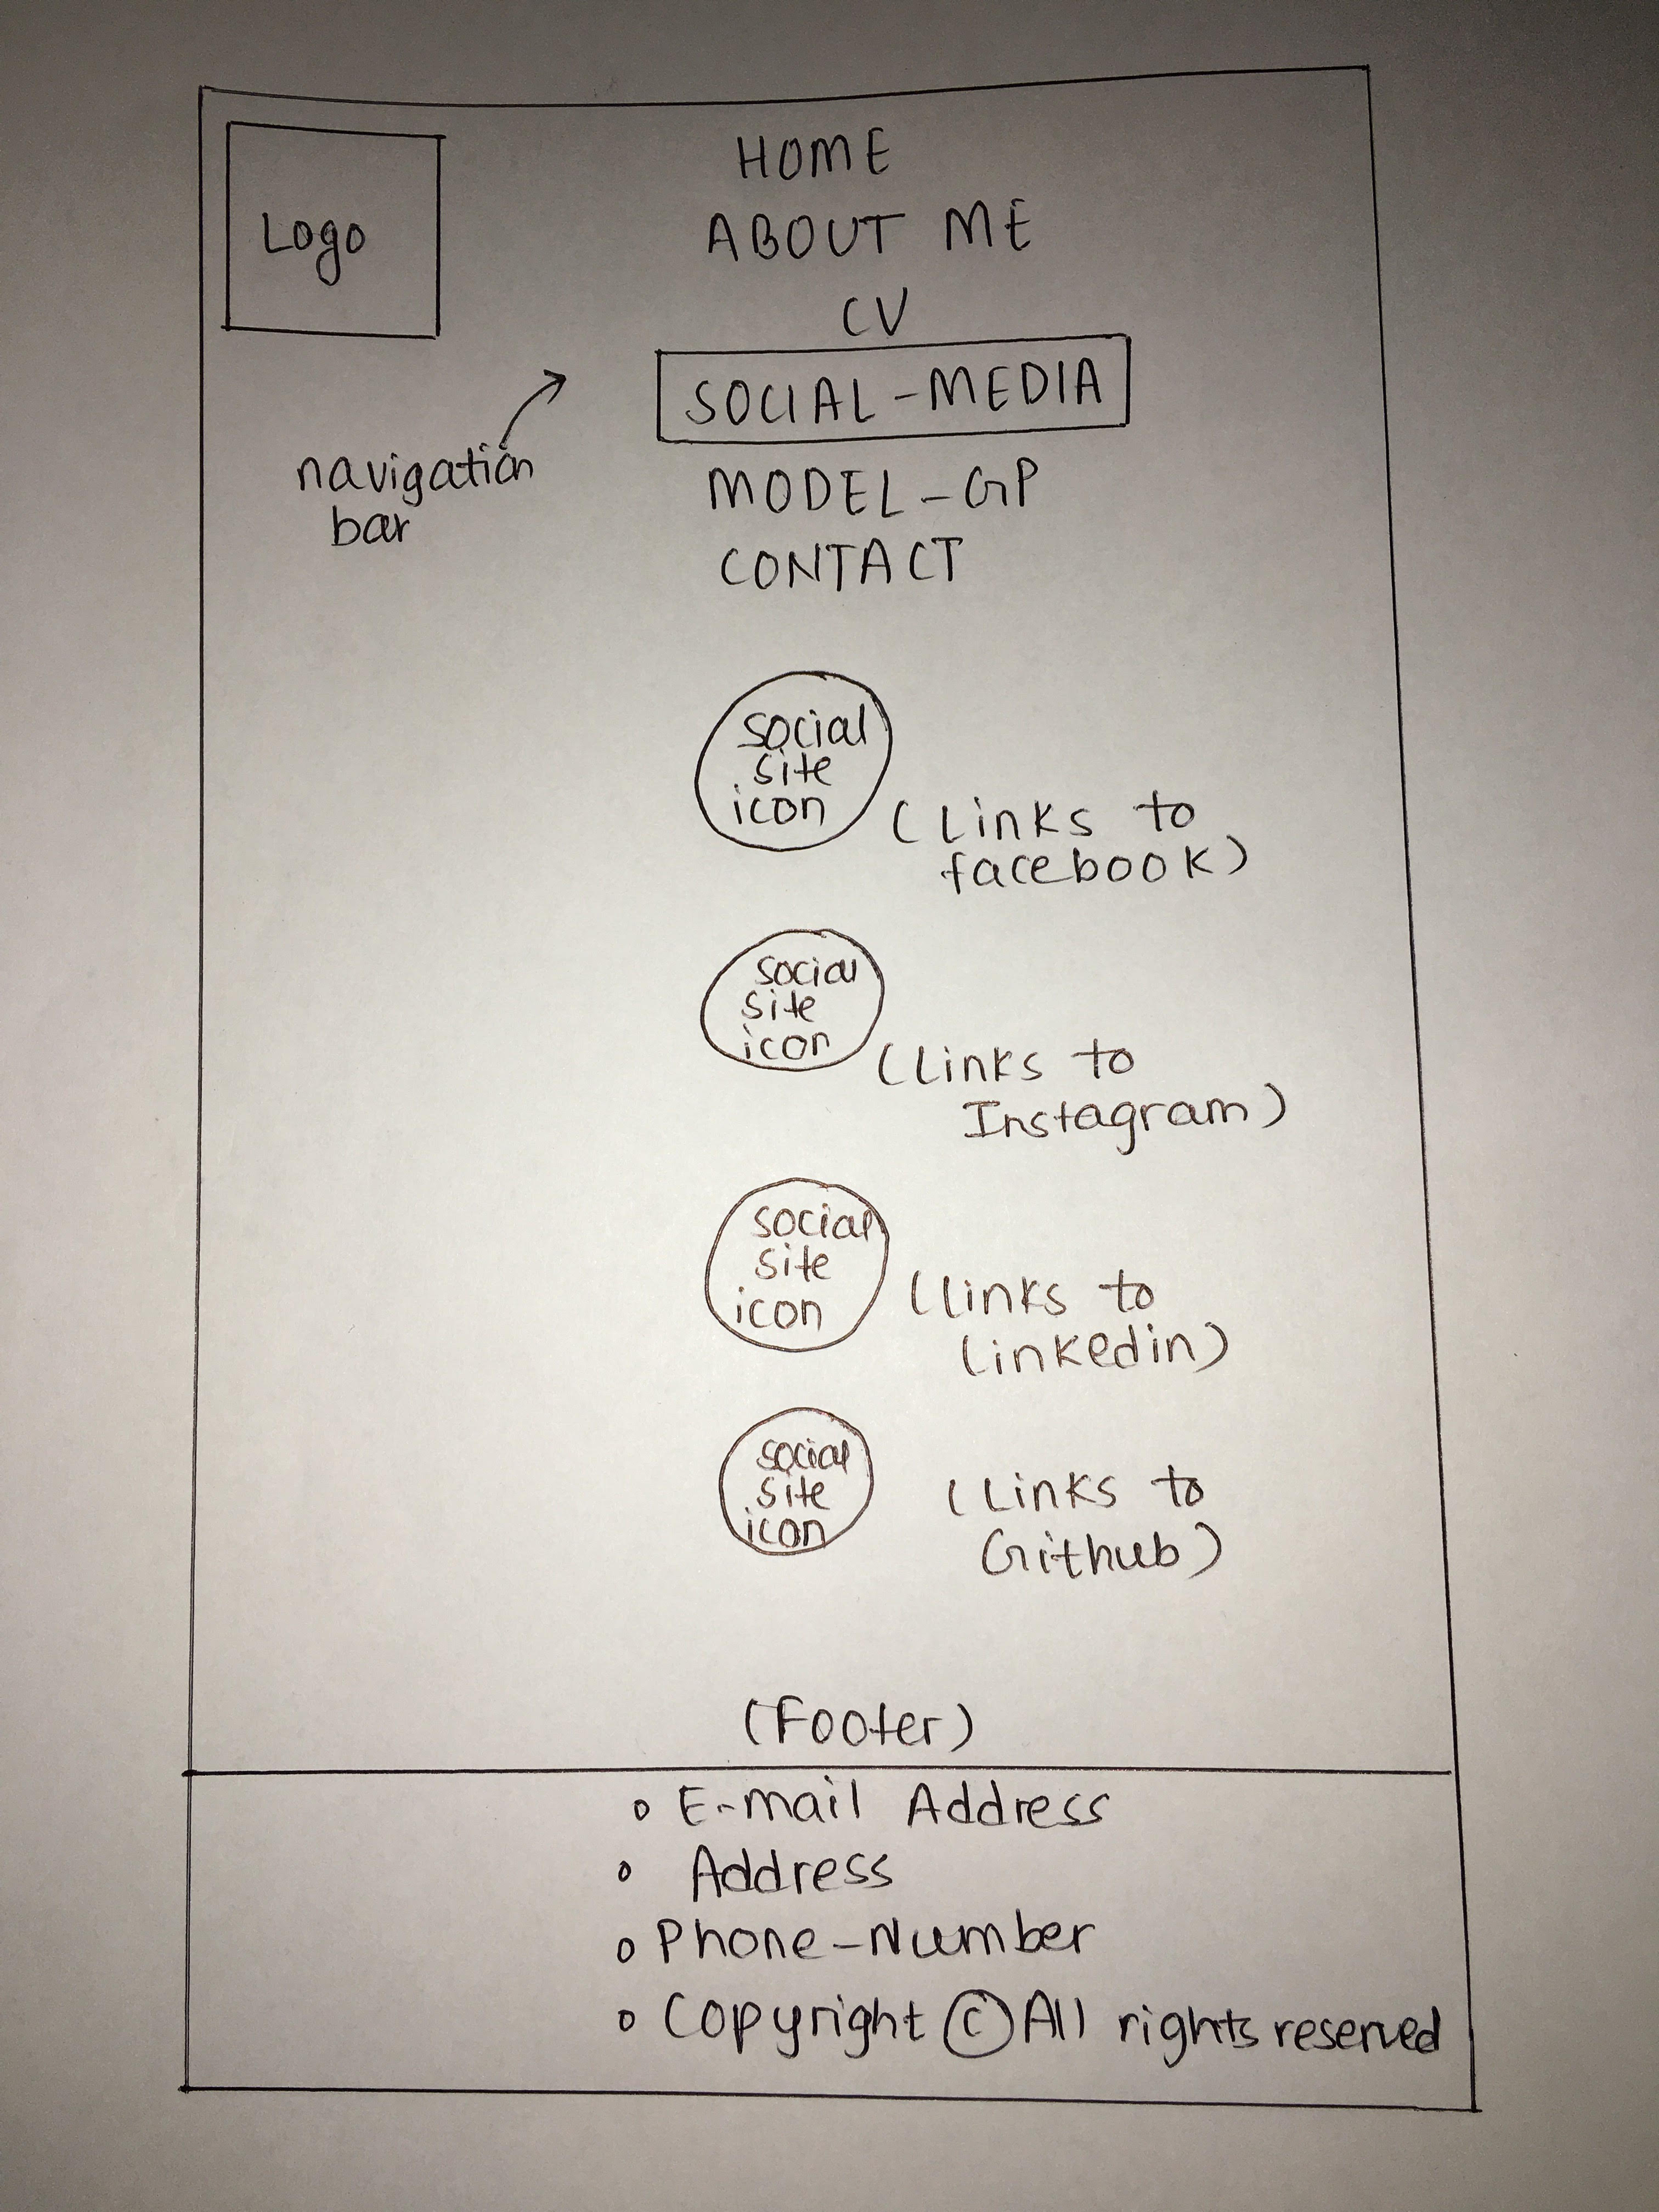 HOME
Logo
ABOUT ME
CV
SOCIAL-MEDIA
navigation
bar
MODEL-GP
CONTACT
social
site
icon
(Links to
facebook)
social
site
icon
(Links to
Instagram)
social
site
icon
(links to
Linkedin)
social
site
icon
(Links to
Github)
(Footer)
E-mail Address
Address
Phone-Number
Copyright © All rights reserved